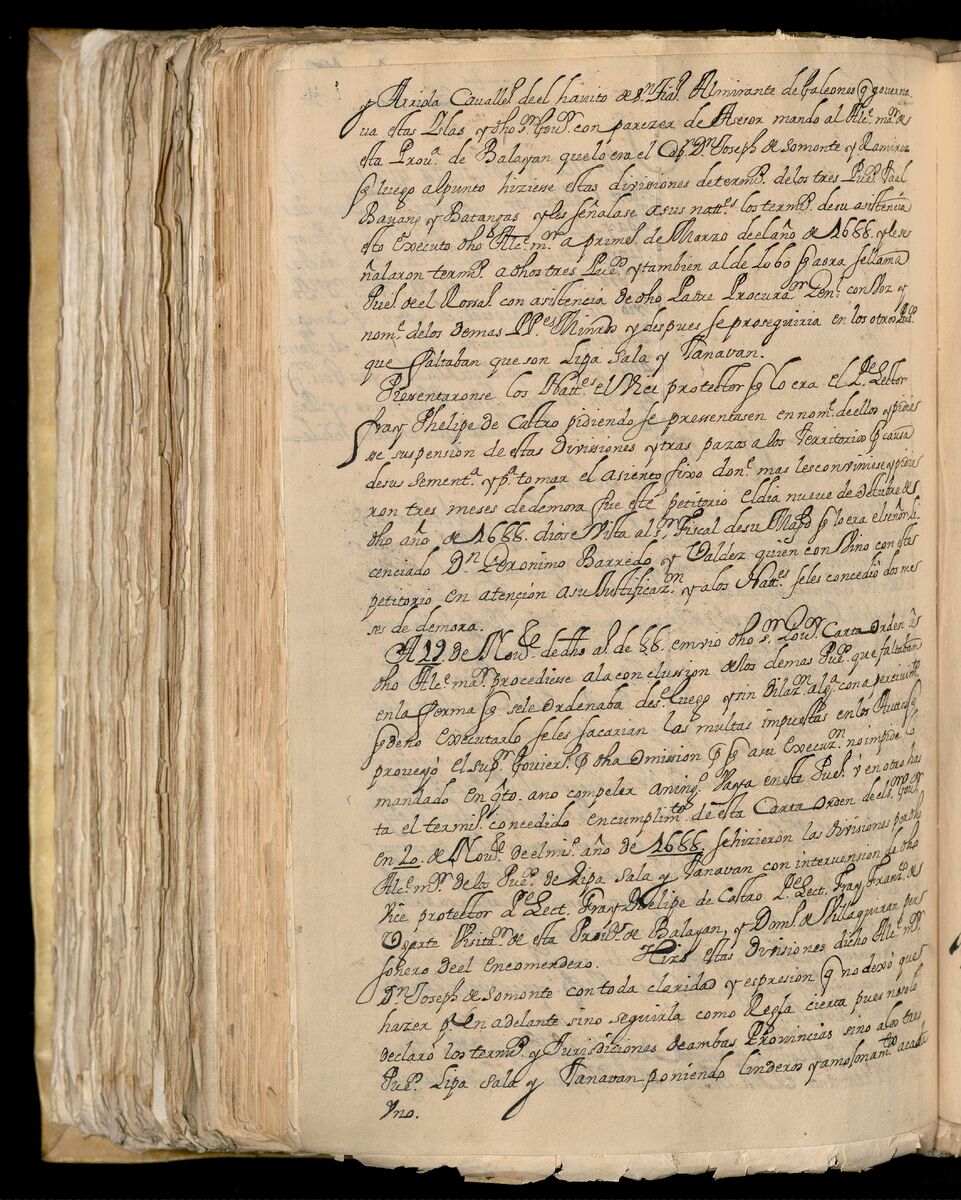 y Arriola Cavallero. de el havito de Sn. Tiago. Almirante de Galeones q̃ governa
va estas Islas y dho sr. Govr. con parezer de Asesor mando al Alce. mayr. de
esta Prova. de Balayan que lo era el Capn. Dn. Joseph de Somonte y Ramirez
q̃ luego al punto hiziese estas divissiones de termos. de los tres Pues. Taal
Bauang y Batangas y les señalase a sus natles. los termos. de su asistencia
esto executo dho Alce. mr. a primo. de Marzo de el año de 1688. y le se
ñalaron termos. a dhos tres Pues. y tambien al de Lobo q̃ aora se llama
Pueo. de el Rossao. con asistencia de dho Padre Procuraor. Genl. con voz y
nome. de los demas PPes Minros y despues se proseguiria en los otros Pues.
que faltaban que son Lipa Sala y Tanavan.
Presentaronse los Natles. el Vice protector q̃ lo era el Pe. Lector
fray Phelipe de Castro pidiendo se pressentasen en nome. de ellos y pidies
se suspension de estas Divissiones y tras pazos a los Territorios p̃ causa
de su sementa. y pa. tomar el asiento fixo done. mas les conviniese y pidie
ron tres meses de demora fue este petitorio el dia nueve de Octubre de
dho año de 1688. diose Vista al sr. Fiscal de su Magd q̃ lo era el señor Li
cenciado Dn. Geronimo Barredo y Valdez quien con Vino con este
petitorio en atención a su Justificazn. y a los Natles. se les concedió dos me
ses de demora.
A 19. de Nove. de dho aº. de 88. envio dho sr. Govr. Carta orden a
dho Alce. mayr. procediesse a la conclussion de los demas Pues. que faltaban
en la forma q̃ se le ordenaba dese. luego y sin dilazn. alga. con apercivimto
q̃ de no executarlo se les sacarian las multas impuestas en los Autos q̃
proveyó el supr. Goviero. p̃ dha omission p̃ q̃ a su execuzn. no impide lo
mandado en qto. a no compeler a ningo. Vaya en este Pueo. y en otro has
ta el termio. concedido en cumplimto. de esta Carta orden de el sr. Govr
en 20. de Nove. de el mismo. año de 1688. se hizieron las divisiones por dho
Alce. mr. de los Pues. de Lipa Sala y Tanavan con intervension de dho
Vice protector Pe. Lect. Fray Phelipe de Castro Pe. Lect. Fray Franco. de
Ugarte Visitar. de esta Prova. de Balayan, y Domo. de Villaquiran per
sonero de el encomendero. Hizo estas Divisiones dicho Alce. mr.
Dn. Joseph de Somonte con toda claridad y espresion q̃ no dexó que
hazer pa. en adelante sino seguirla como Regla cierta pues no solo
declaró los termos. y Jurisdiciones de ambas Provincias sino a los tres
Pues. Lipa Sala y Tanavan poniendo linderos y amojonamto. a cada
Vno.